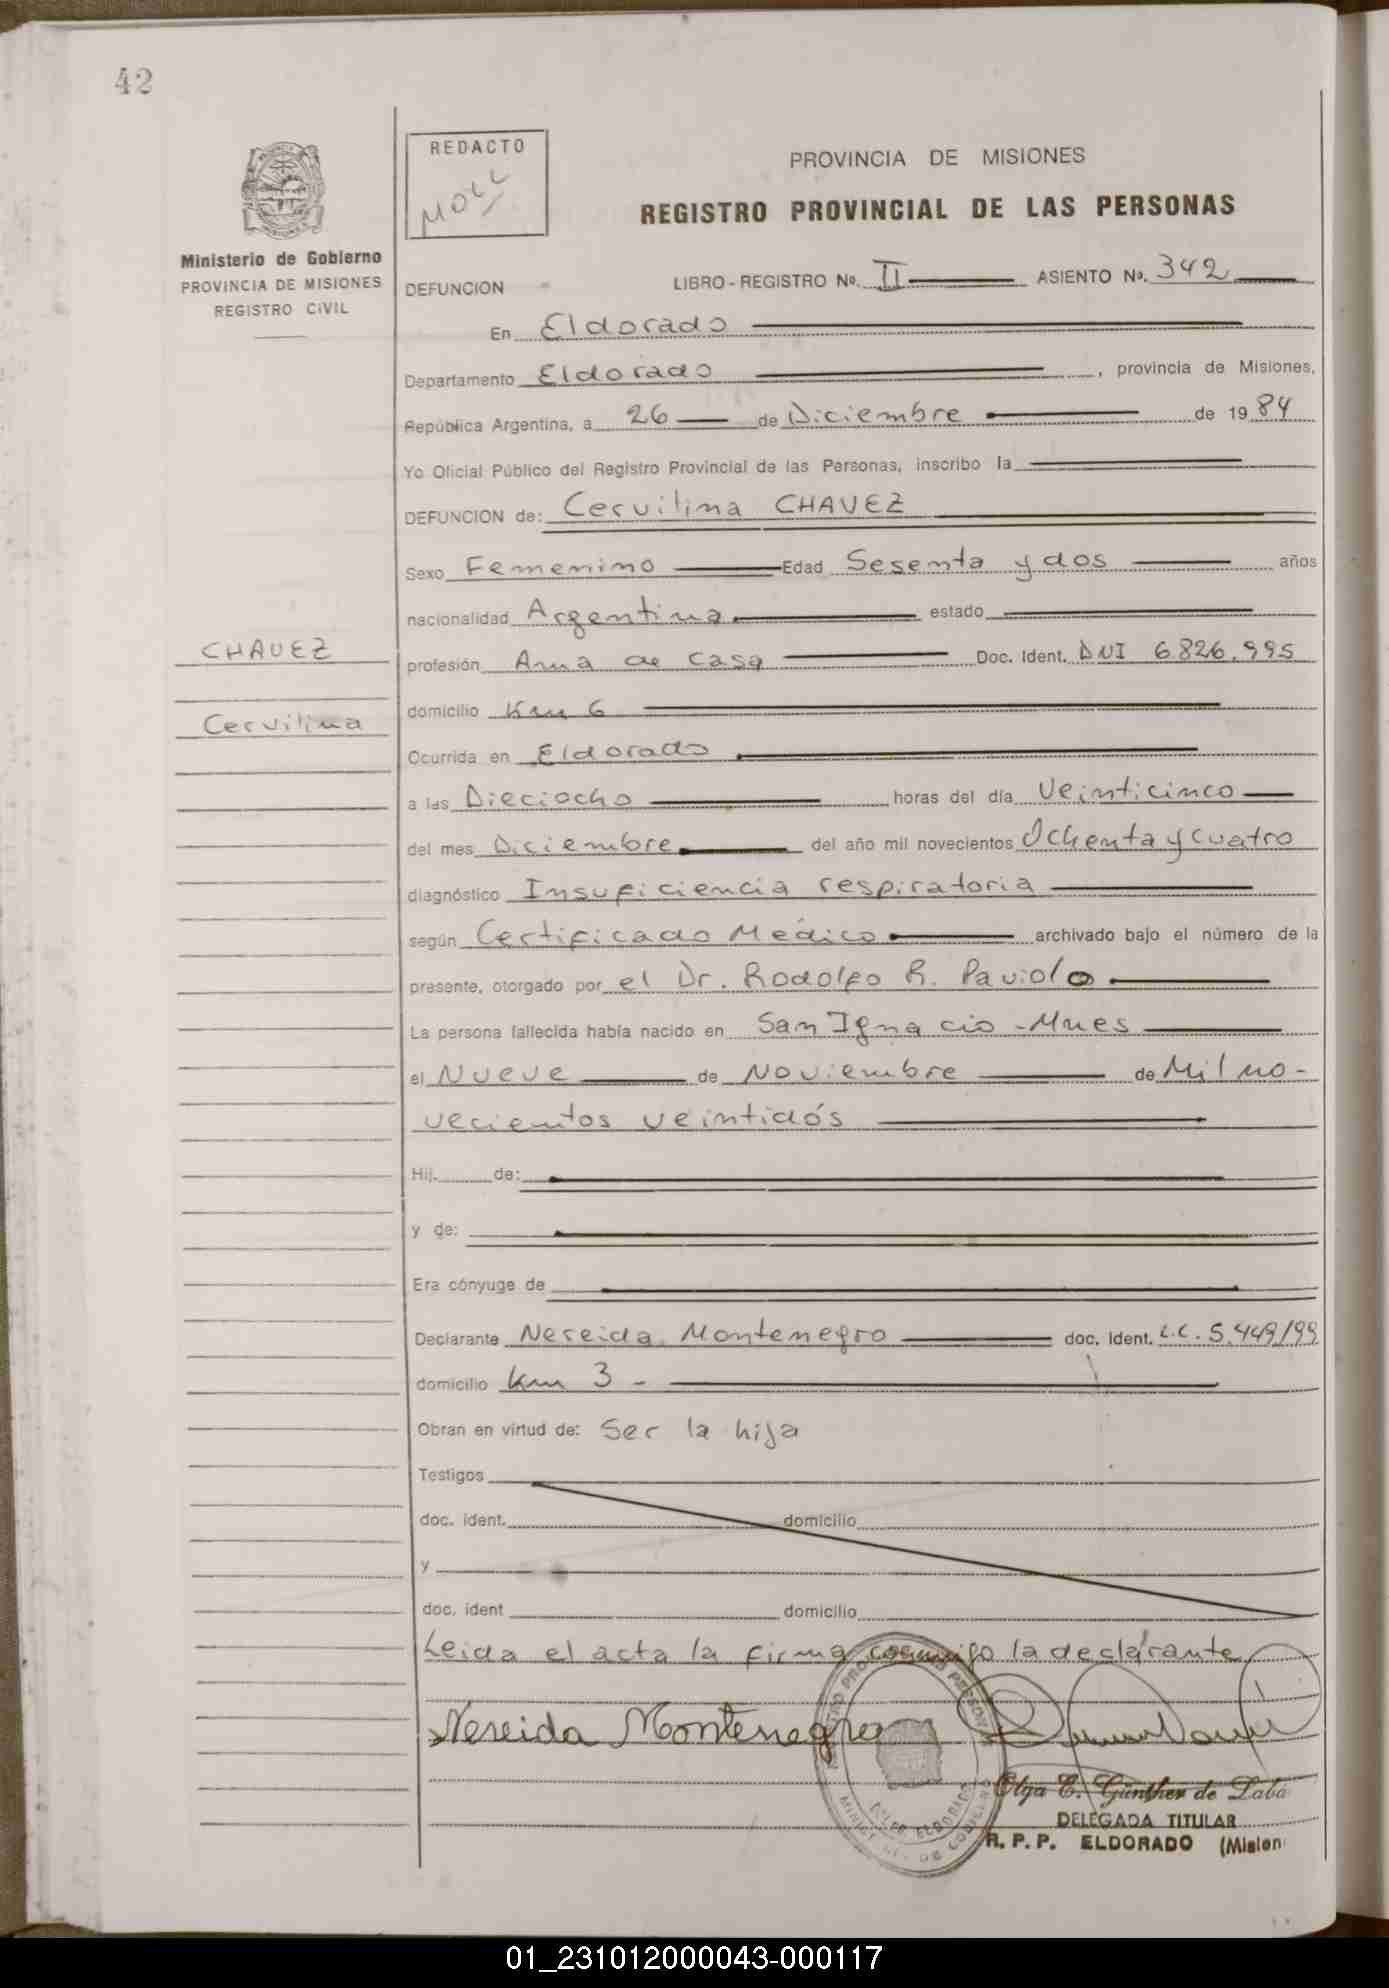 42
REDACTO
MOLL
Ministerio de Gobierno
PROVINCIA DE MISIONES
REGISTRO CIVIL
PROVINCIA DE MISIONES
REGISTRO PROVINCIAL DE LAS PERSONAS
DEFUNCION LIBRO-REGISTRO No. II ASIENTO No. 342
En Eldorado
Departamento Eldorado, provincia de Misiones,
República Argentina, a 26 de Diciembre de 1984
Yo Oficial Público del Registro Provincial de las Personas, inscribo la
DEFUNCION de: Cervilina CHAVEZ
Sexo Femenino Edad Sesenta y dos años
nacionalidad Argentina estado
CHAVEZ
Cervilina
profesión Ama de casa Doc. Ident. DNI 6.826.995
domicilio Km 6
Ocurrida en Eldorado
a las Dieciocho horas del día Veinticinco
del mes Diciembre del año mil novecientos Ochenta y cuatro
diagnóstico Insuficiencia respiratoria
según Certificado Médico archivado bajo el número de la
presente, otorgado por el Dr. Rodolfo R. Paviolo
La persona fallecida había nacido en San Ignacio - Mnes
el Nueve de Noviembre de Mil no-
vecientos veintidós
Hij. de:
y de:
Era cónyuge de
Declarante Nereida Montenegro doc. ident. L.C. 5.449199
domicilio Km 3 -
Obran en virtud de: Ser la hija
Testigos
doc. ident. domicilio
y
doc. ident domicilio
Leida el acta la firma conmigo la declarante
Nereida Montenegro
Olga E. Günther de Laba
DELEGADA TITULAR
R. P. P. ELDORADO (Mision
01_231012000043-000117